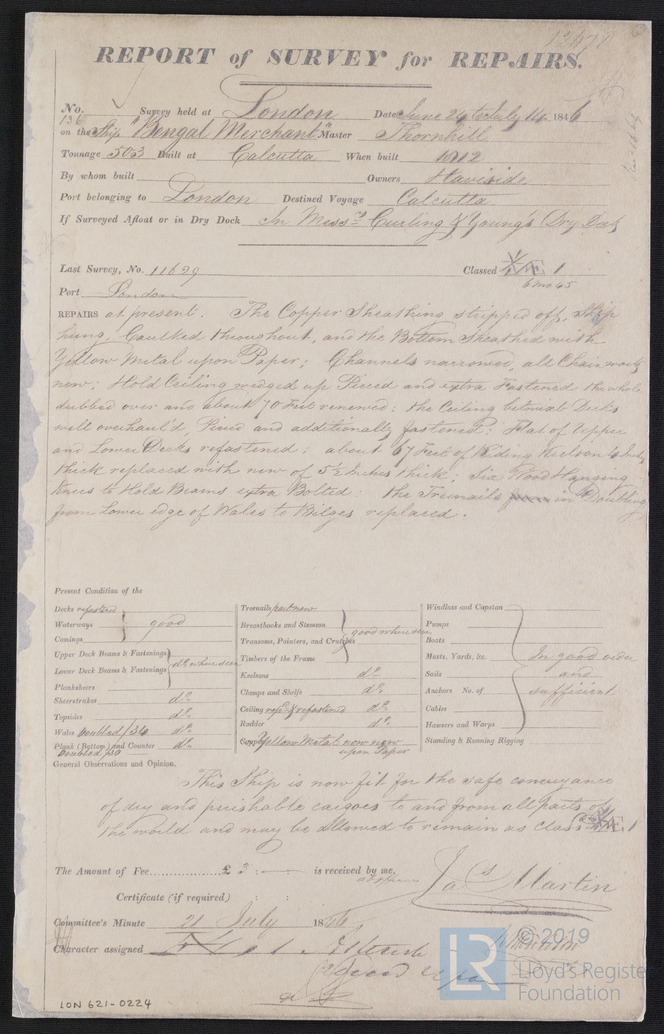 REPORT of SURVEY for REPAIRS.
No. 136 Survey held at London Date June 24 to July 14 1846
on the Ship "Bengal Merchant" Master Thornhill
Tonnage 503 Built at Calcutta When built 1812
By whom built Owners Haviside
Port belonging to London Destined Voyage Calcutta
If Surveyed Afloat or in Dry Dock In Mess.rs Curling & Young's Dry Dock
Last Survey, No. 11629 Classed Æ 1
6 mo 45
Port London
REPAIRS at present. The Copper Sheathing stripped off, Ship
hung, Caulked throughout, and the Bottom Sheathed with
Yellow Metal upon Paper; Channels narrowed, all Chain work
new; Hold Ceiling wedged up Pieced and extra Fastened the whole
dubbed over and about 70 Feet renewed; the Ceiling betwixt Decks
well overhaul'd, Pieced and additionally fastened; Flat of Upper
and Lower Decks refastened; about 67 Feet of Riding Keelson 4 Inch
thick replaced with new of 5½ Inches thick; Six Wood Hanging
Knees to Hold Beams extra Bolted: the Treenails in Doubling
from Lower edge of Wales to Bilges replaced.
Present Condition of the
Decks refastened
Waterways good
Comings
Upper Deck Beams & Fastenings
Lower Deck Beams & Fastenings do where seen
Planksheers
Sheerstrakes do
Topsides do
Wales Doubled/34 do
Plank (Bottom) and Counter do
Doubled/30
Treenails part new
Breasthooks and Stemson
Transoms, Pointers, and Crutches good where seen
Timbers of the Frame
Keelsons do
Clamps and Shelfs do
Ceiling repd & refastened do
Rudder do
Copper Yellow Metal now new
upon Paper
Windlass and Capstan
Pumps
Boats
Masts, Yards, &c. In good order
Sails and
Anchors No. of sufficient
Cables
Hawsers and Warps
Standing & Running Rigging
General Observations and Opinion,
This Ship is now fit for the safe conveyance
of dry and perishable cargoes to and from all parts of
the world and may be allowed to remain as class Æ 1
The Amount of Fee £ 3 : - : - is received by me,
Jas Martin
Certificate (if required)
Committee's Minute 21 July 1846
Character assigned
LON 621-0224
© 2019
LR
Lloyd's Register
Foundation